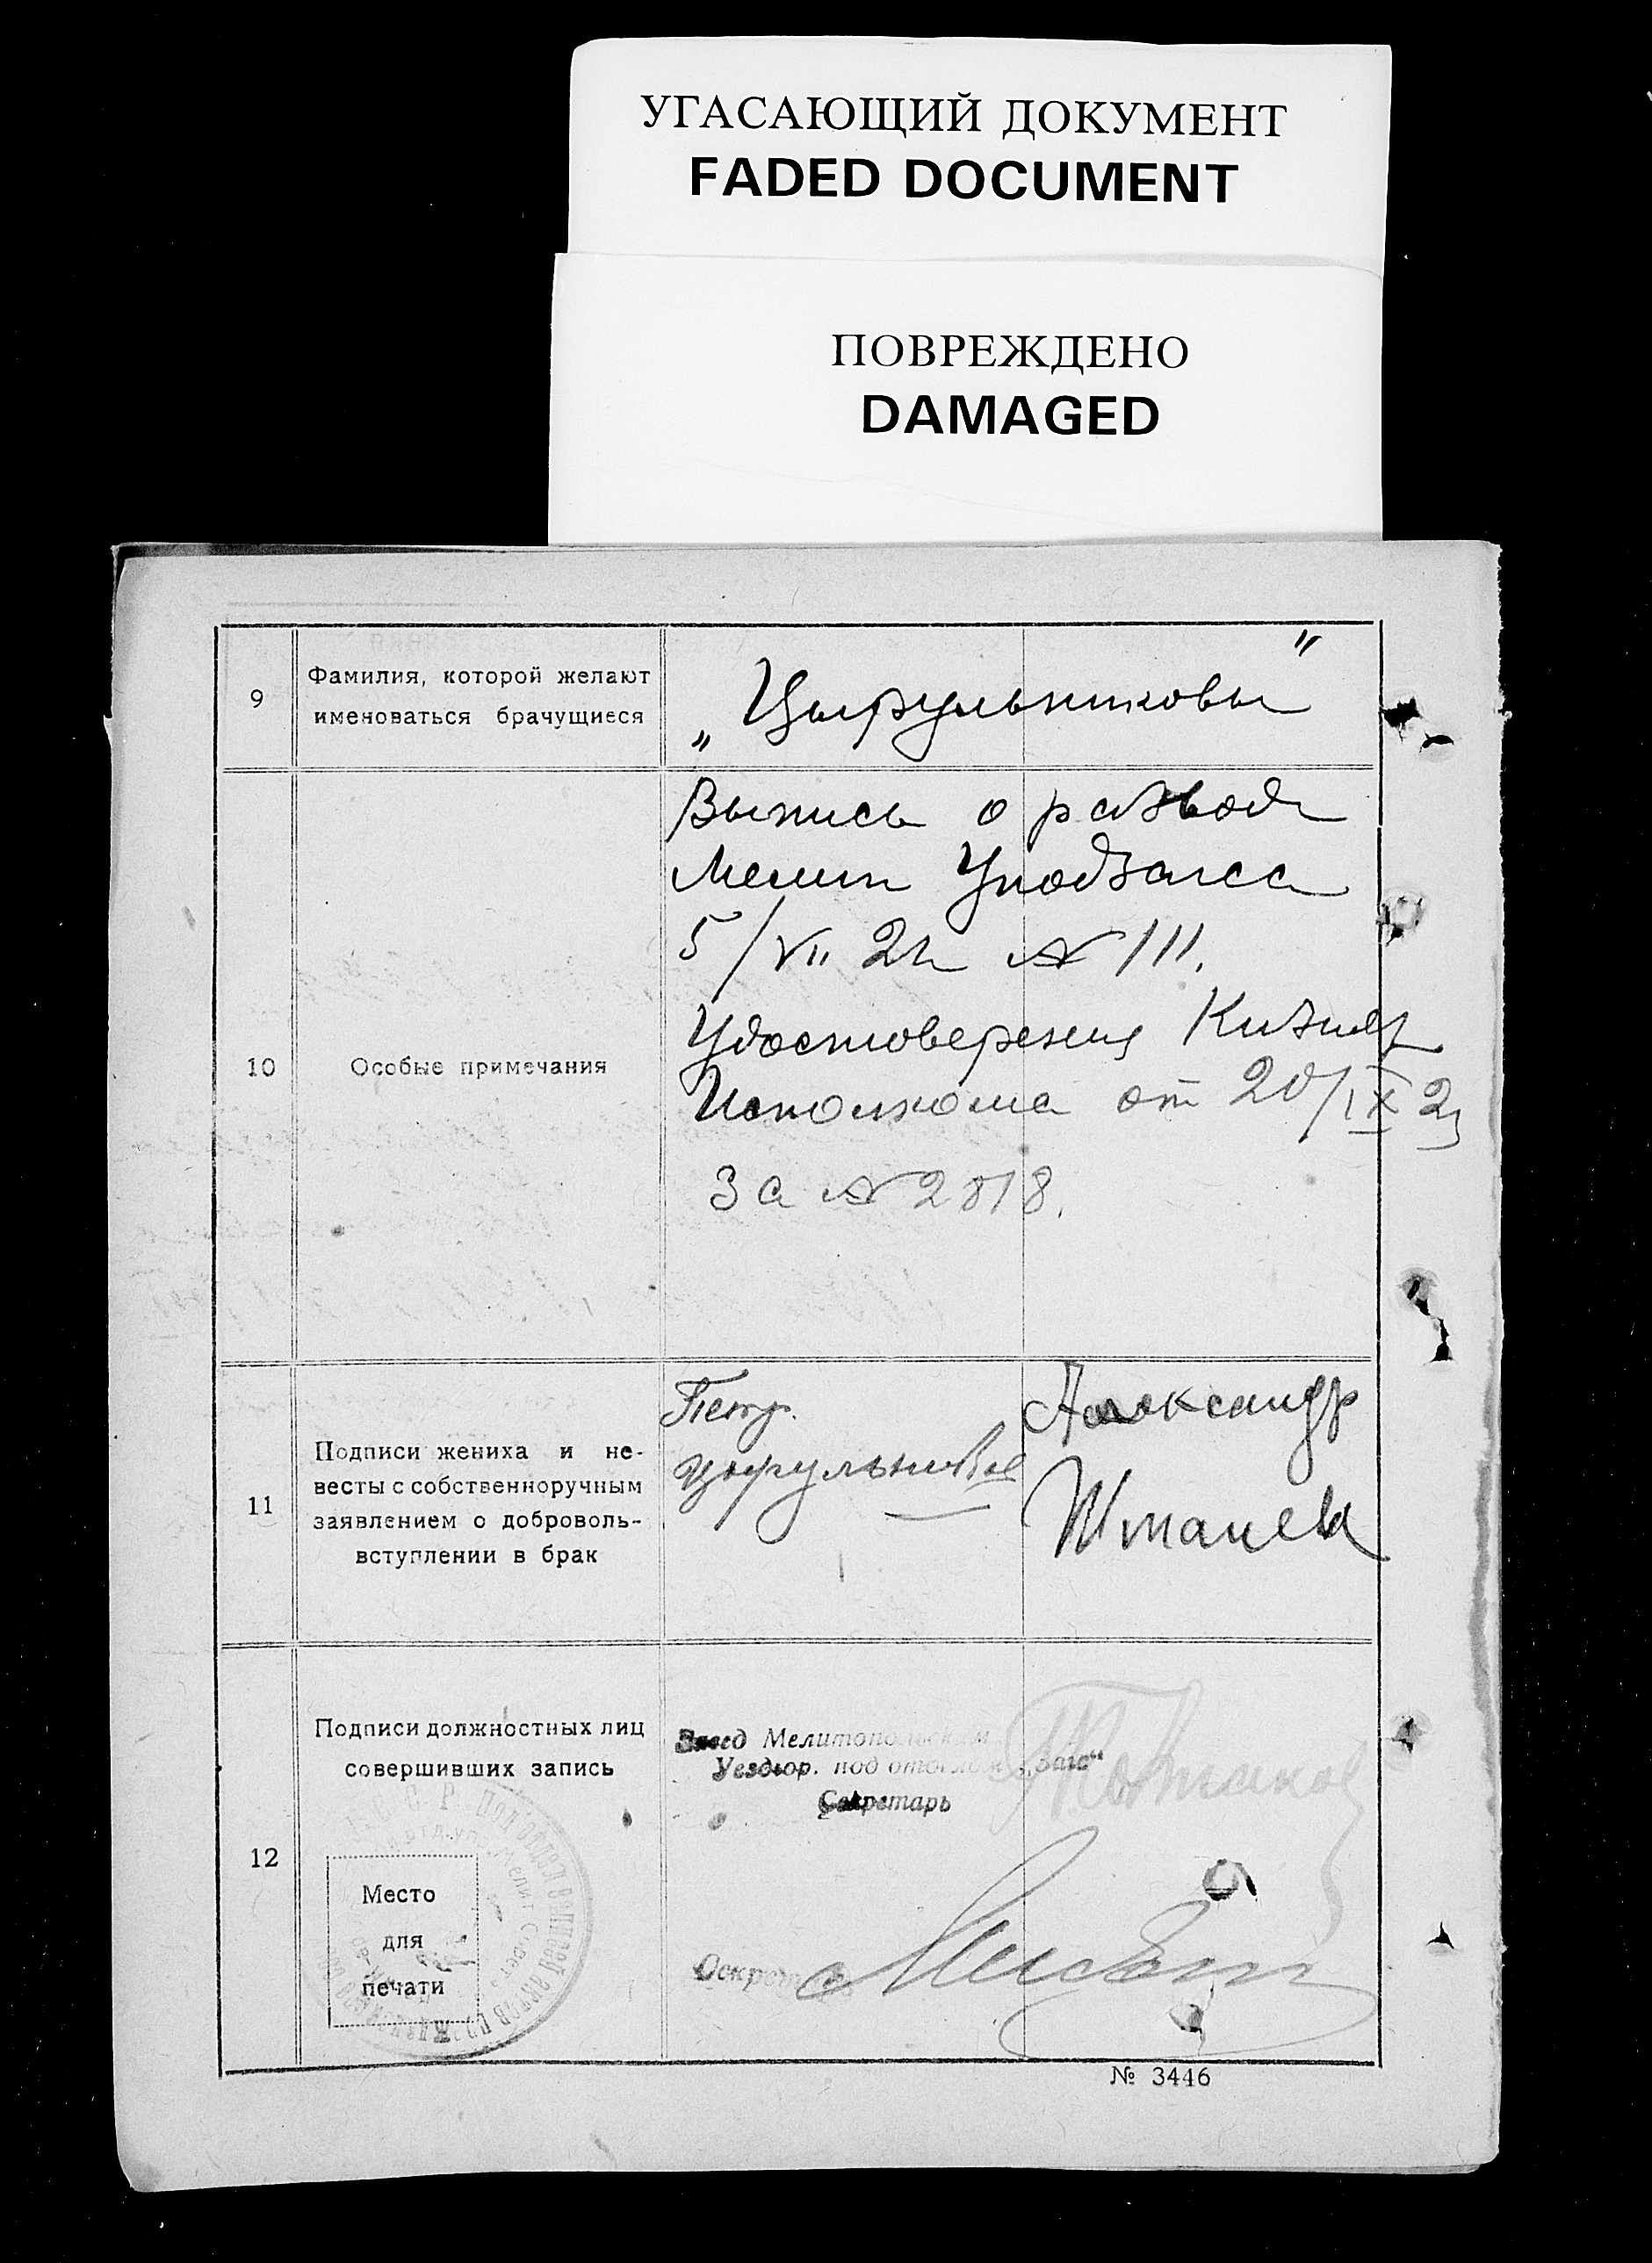 УГАСАЮЩИЙ ДОКУМЕНТ
FADED DOCUMENT
ПОВРЕЖДЕНО
DAMAGED
9
Фамилия, которой желают
именоваться брачущиеся
„Цырульниковы"
10
Особые примечания
Выпись о разводе
Мелит Уподзагса
5/VII 21 № 111.
Удостоверения
Исполкома от 20/IX
За № 2818.
11
Подписи жениха и не-
весты с собственноручным
заявлением о доброволь-
вступлении в брак
Петр
Александр
12
Подписи должностных лиц
совершивших запись
Место
для
печати
Завед Мелитопольским
Уездюр. под отделом „Загс"
Секретарь
Секретарь
№ 3446